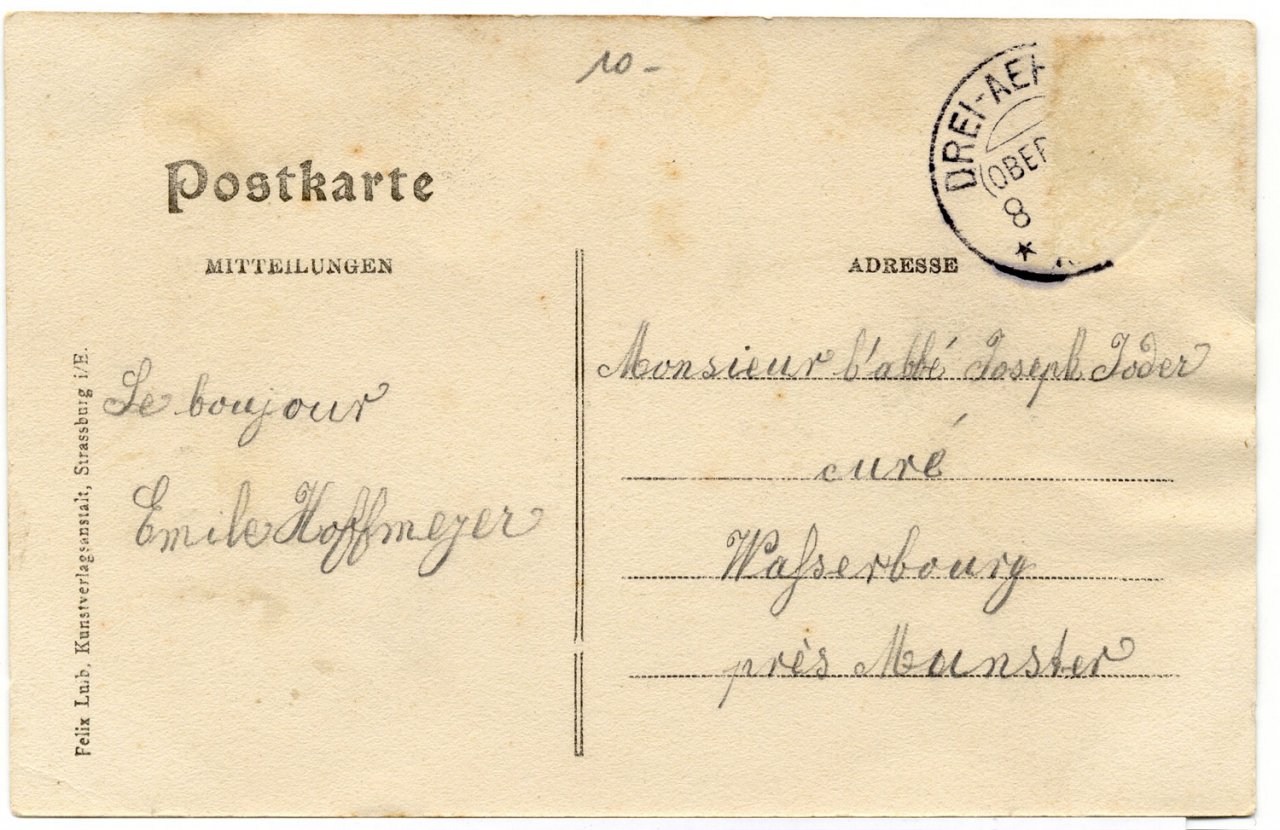 10-
DREI-AEH
(OBER
8
Postkarte
MITTEILUNGEN
ADRESSE
Le boujour
Emile Hoffmeyer
Monsieur l'abbé Joseph Joder
curé
Wasserbourg
près Munster
Felix Luib, Kunstverlagsanstalt, Strassburg i/E.